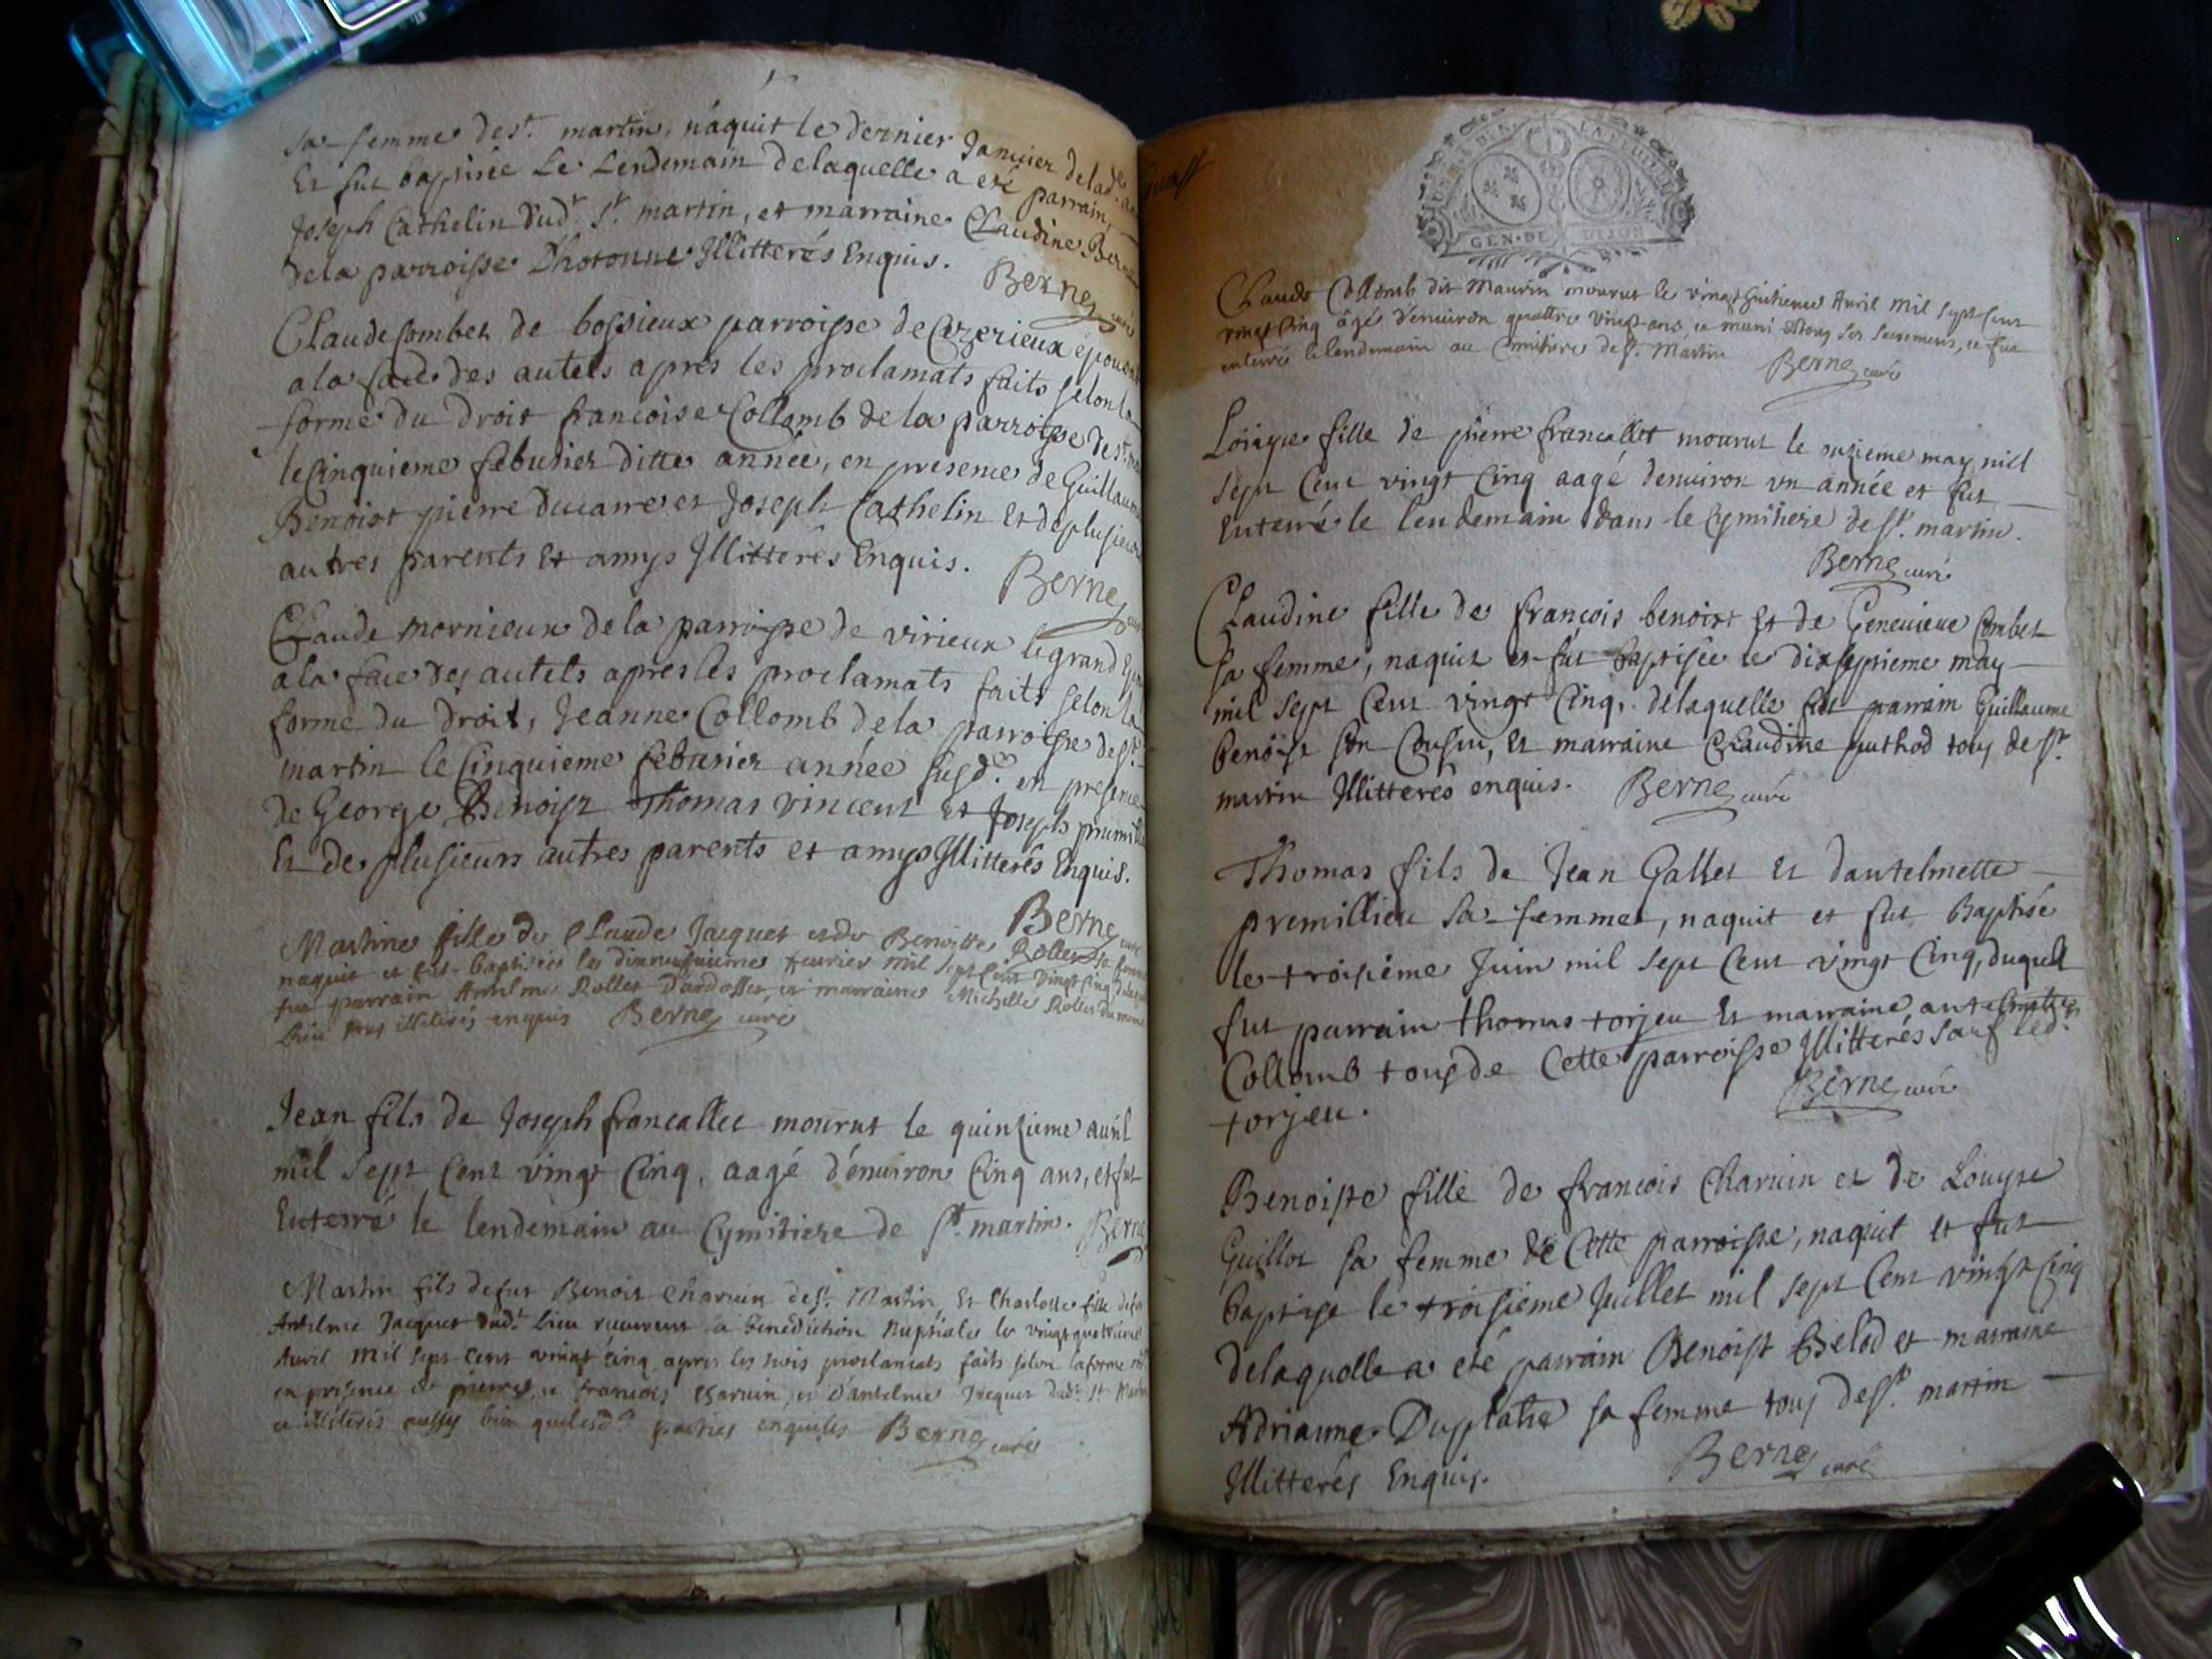 sa femme de st. martin, náquit le dernier Januier delad.
Et fut baptisée Le Lendemain delaquelle a eté parrain,
Joseph Cathelin dud.t St. martin, et marraine Claudine
dela parroisse D'hotonne Illitterés Enquis. Berne curé
Claude Combet de bossieux parroisse de Cezerieux epousa
a la face des autels aprés les proclamats faits selon la
forme du Droit francoise Collomb de la parroisse de st.
le Cinquieme feburier ditte année, en presence de Guillaume
Benoist pierre ducarre et Joseph Cathelin Et de plusieurs
autres parents Et amys Illitterés Enquis. Berne
Claude mornieux de la parroisse de virieux le grand
a la face des autels apres les proclamats faits selon la
forme du Droit, Jeanne Collomb dela parroisse de st.
martin le Cinquieme feburier année susd.e en presence
de George Benoist Thomas vincent Et Joseph
Et de plusieurs autres parents et amys Illitterés Enquis.
Berne curé
Martine fille de Claude Jacquet et de Benoitte Rollet sa femme
naquit et fut baptisée le dixneufuieme feurier mil sept cent vingt cinq
fut parrain Antelme Rollet D'ardosset, et marraine Michelle Rollet du meme
Lieu tous illiterés enquis Berne curé
Jean fils de Joseph francallet mourut le quinzieme auril
mil sept Cent vingt Cinq, aagé d'enuiron Cinq ans, et fut
Enterré le lendemain au Cymitiere de st. martin. Berne
Martin fils de fut Benoit Charuin de st. Martin, Et Charlotte fille de
Antelme Jacquet dud.t Lieu receurent la benediction Nuptiale le vingt quatrieme
Auril mil sept cent vingt cinq apres les trois proclamats faits selon la forme
en presence de pierre, et francois Charuin, et D'antelme Jacquet dud.t st.
et illiterés aussy bien que lesd.es parties enquises Berne curé
GEN·DE DIJON
Claude Collomb dit Maurin mourut le vingthuitieme Auril mil sept cent
vingt Cinq âgé d'enuiron quattre vingt ans, et muni de tous ses sacremens, et fut
enterré le lendemain au Cimitiere de st. Martin Berne curé
fille de pierre francallet mourut le onzieme may mil
sept Cent vingt Cinq aagé denuiron vn année et fut
Enterré le lendemain dans le Cymitiere de st. martin.
Berne curé
Claudine fille de francois benoist Et de Geneuieue Combet
sa femme, naquit et fut baptisée le dixseptieme may
mil sept Cent vingt Cinq, delaquelle fut parrain Guillaume
benoist son Cousin, Et marraine Claudine puthod tous de st.
martin Illitterés enquis. Berne curé
Thomas fils de Jean Gallet Et dantelmette
premillieu sa femme, naquit et fut Baptisé
le troisième Juin mil sept Cent vingt Cinq, duquel
fut parrain thomas torjeu Et marraine, antelmette
Collomb tous de Cette parroisse Illitterés sauf led.t
torjeu. Berne curé
Benoiste fille de francois Charuin et de Louyse
Guillot sa femme de Cette parroisse, naquit et fut
baptisé le troisieme Juillet mil sept Cent vingt Cinq
delaquelle a eté parrain Benoist Belod et marraine
Adrianne Duplatre sa femme tous de st. martin
Illitterés Enquis. Berne curé